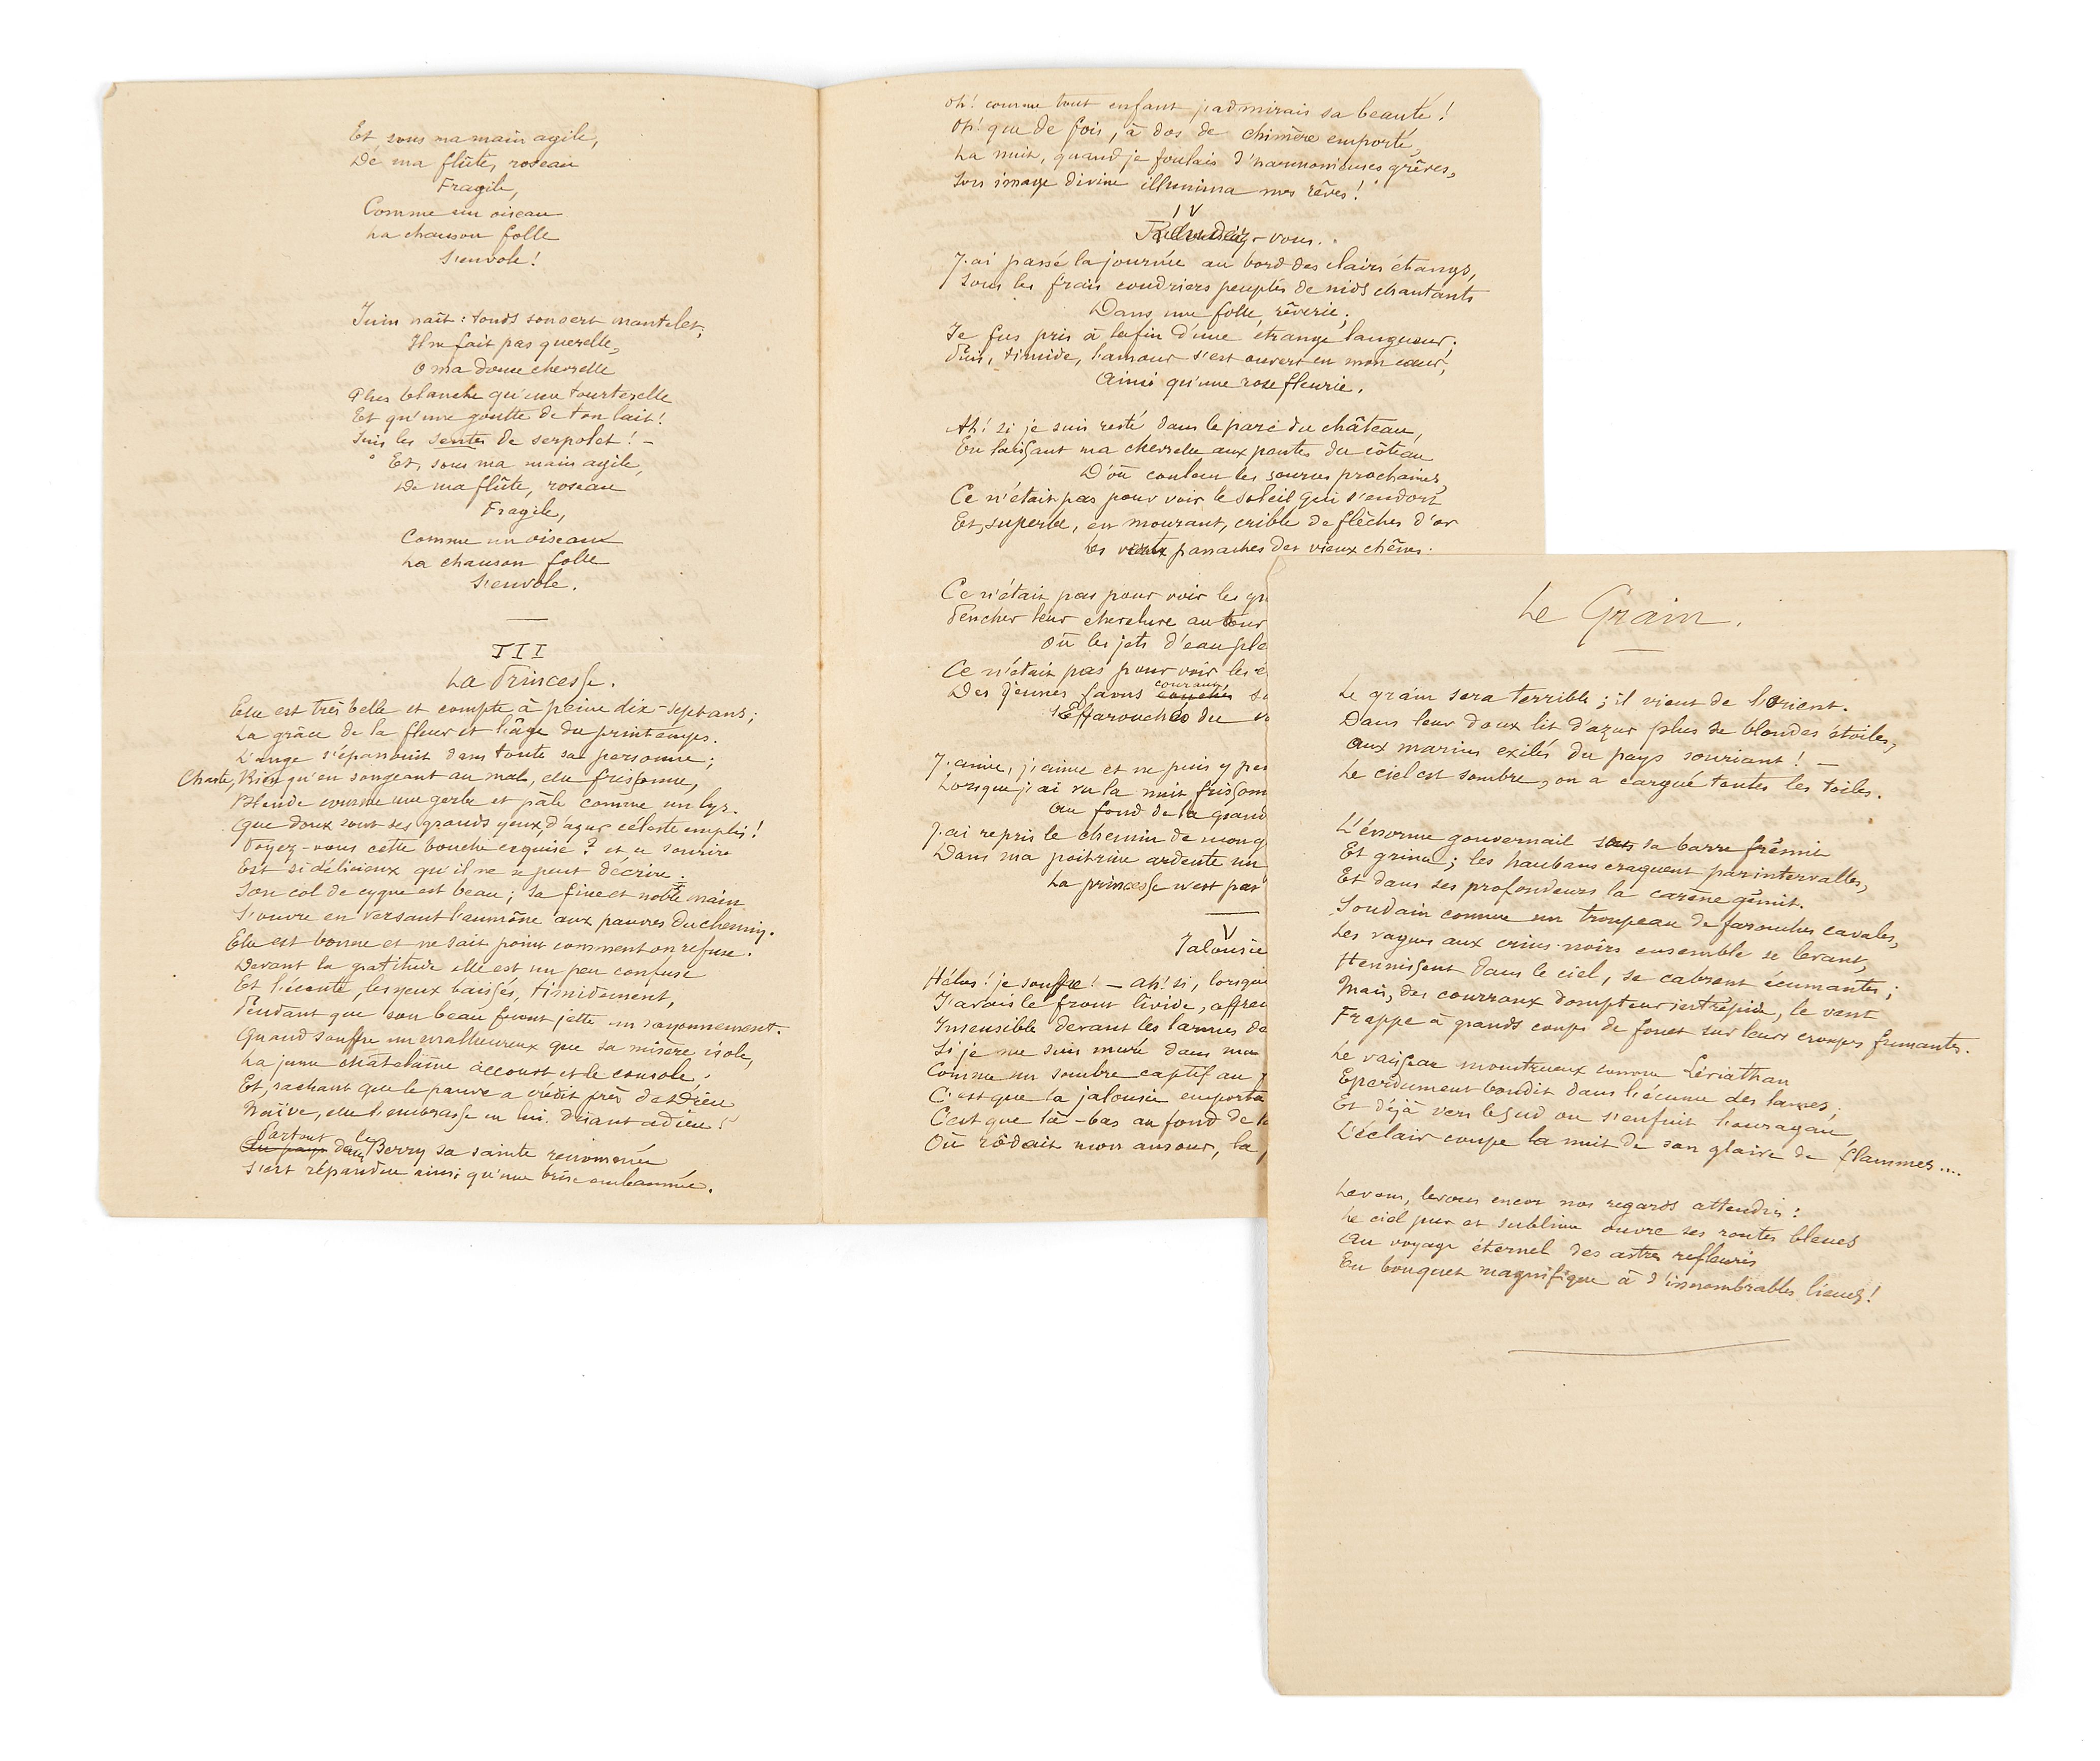 Et, sous ma main agile,
De ma flûte, roseau
Fragile,
Comme un oiseau
La chanson folle
S'envole!
Juin naît : tonds son vert mantelet;
Il ne fait pas querelle,
O ma douce chevrelle
Plus blanche qu'une tourterelle
Et qu'une goutte de ton lait!
Suis les sentes de serpolet! —
Et, sous ma main agile,
De ma flûte, roseau
Fragile,
Comme un oiseau
La chanson folle
S'envole.
III
La Princesse.
Elle est très belle et compte à peine dix-sept ans;
La grâce de la fleur et l'âge du printemps.
L'ange s'épanouit dans toute sa personne;
Chaste, Rien qu'en songeant au mal, elle frissonne,
Blonde comme une gerbe et pâle comme un lys.
Que doux sont ses grands yeux d'azur céleste emplis!
Voyez-vous cette bouche exquise? et ce sourire
Est si délicieux qu'il ne se peut décrire.
Son col de cygne est beau; sa fine et noble main
S'ouvre en versant l'aumône aux pauvres du chemin.
Elle est bonne et ne sait point comment on refuse.
Devant la gratitude elle est un peu confuse
Et l'écoute, les yeux baissés, timidement,
Pendant que son beau front jette un rayonnement.
Quand souffre un malheureux que sa misère isole,
La jeune châtelaine accourt et le console.
Et, sachant que le pauvre a crédit près de Dieu
Naïve, elle l'embrasse en lui disant adieu!
Partout dans le Berry sa sainte renommée
S'est répandue ainsi qu'une brise embaumée.
Oh! comme tout enfant j'admirais sa beauté!
Oh! que de fois, à dos de chimère emporté,
La nuit, quand je foulais d'harmonieuses grèves,
Son image divine illumina mes rêves!
IV
-vous.
J'ai passé la journée au bord des clairs étangs,
Sous les frais coudriers peuplés de nids chantants
Dans une folle rêverie;
Je fus pris à la fin d'une étrange langueur.
Puis, timide, l'amour s'est ouvert en mon cœur,
Ainsi qu'une rose fleurie.
Ah! si je suis resté dans le parc du château,
En laissant ma chevrelle aux pentes du côteau
D'où coulent les sources prochaines,
Ce n'était pas pour voir le soleil qui s'endort
Et, superbe, en mourant, crible de flèches d'or
Les verts panaches des vieux chênes.
Ce n'était pas pour voir les
Pencher leur chevelure au tour
Où les jets d'eau
Ce n'était pas pour voir les
Des jeunes faons courant
Effarouchés du
J'aime, j'aime et ne puis y
Lorsque j'ai vu la nuit
Au fond de la
J'ai repris le chemin de
Dans ma poitrine ardente un
La princesse n'est pas
V
Jalousie
Hélas! je souffre! — ah! si,
J'avais le front livide,
Insensible devant les larmes
Si je me suis muré dans
Comme un sombre captif au
C'est que la jalousie
C'est que là-bas au fond de
Où rôdait mon amour, la
Le Grain.
Le grain sera terrible; il vient de l'Orient.
Dans leur doux lit d'azur plus de blondes étoiles,
Aux marins exilés du pays souriant! —
Le ciel est sombre, on a cargué toutes les toiles.
L'énorme gouvernail sous sa barre frémit
Et grince; les haubans craquent par intervalles,
Et dans ses profondeurs la carène gémit.
Soudain comme un troupeau de farouches cavales,
Les vagues aux crins noirs ensemble se levant,
Hennissent dans le ciel, se cabrent écumantes;
Mais, des courroux dompteur intrépide, le vent
Frappe à grands coups de fouet sur leurs croupes fumantes.
Le vaisseau monstrueux comme Léviathan
Eperdument bondit dans l'écume des lames;
Et déjà vers le sud on s'enfuit l'ouragan,
L'éclair coupe la nuit de son glaive de flammes....
Levons, levons encor nos regards attendris :
Le ciel pur et sublime ouvre ses routes bleues
Au voyage éternel des astres refleuris
En bouquet magnifique à d'innombrables lieues!